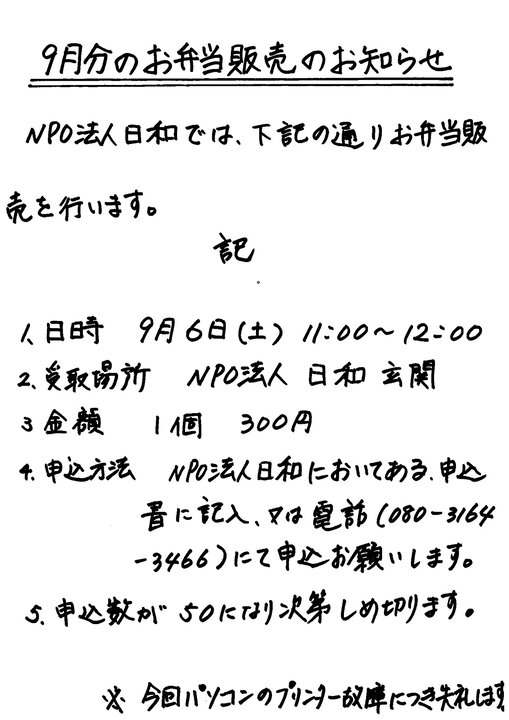 9月分のお弁当販売のお知らせ
NPO法人日和では、下記の通りお弁当販
売を行います。
記
1、日時 9月6日(土) 11:00〜12:00
2、受取場所 NPO法人 日和 玄関
3 金額 1個 300円
4、申込方法 NPO法人日和においてある、申込
書に記入、又は電話(080-3164
-3466)にて申込お願いします。
5、申込数が50になり次第しめ切ります。
※ 今回パソコンのプリンター故障につき失礼します